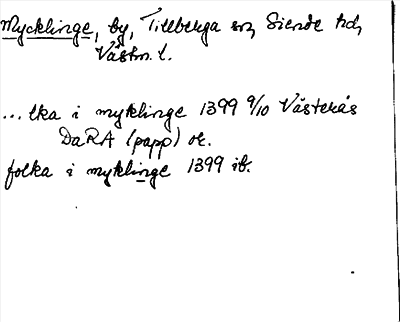 Mycklinge, by, Tillberga sn, Siende hd,
Västm. l.
... lka i myklinge 1399 9/10 Västerås
DaRA (papp) or.
folka i myklinge 1399 ib.